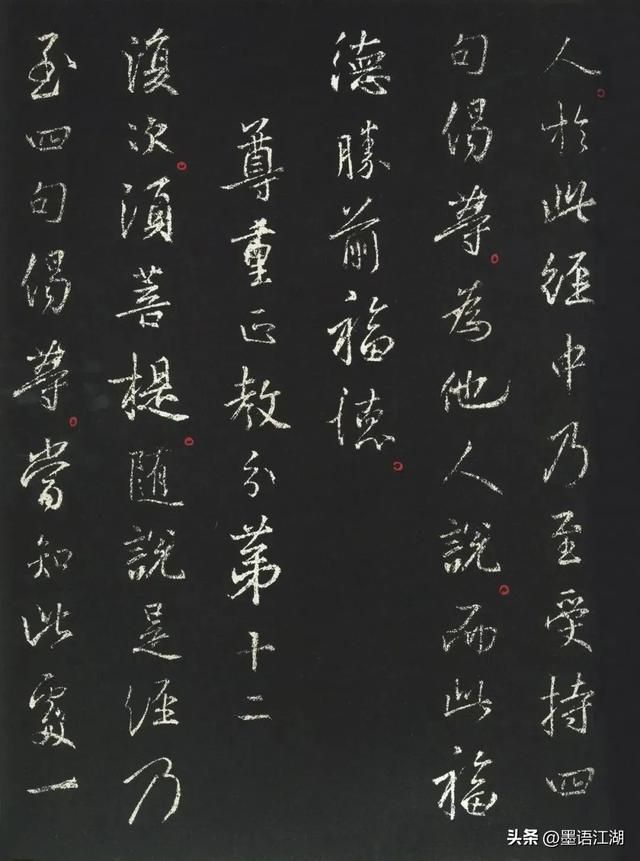 人。於此經中乃至受持四
句偈等。為他人說。而此福
德勝前福德。
尊重正教分第十二
復次。須菩提。隨說是經乃
至四句偈等。當知此處一
头条 @墨语江湖